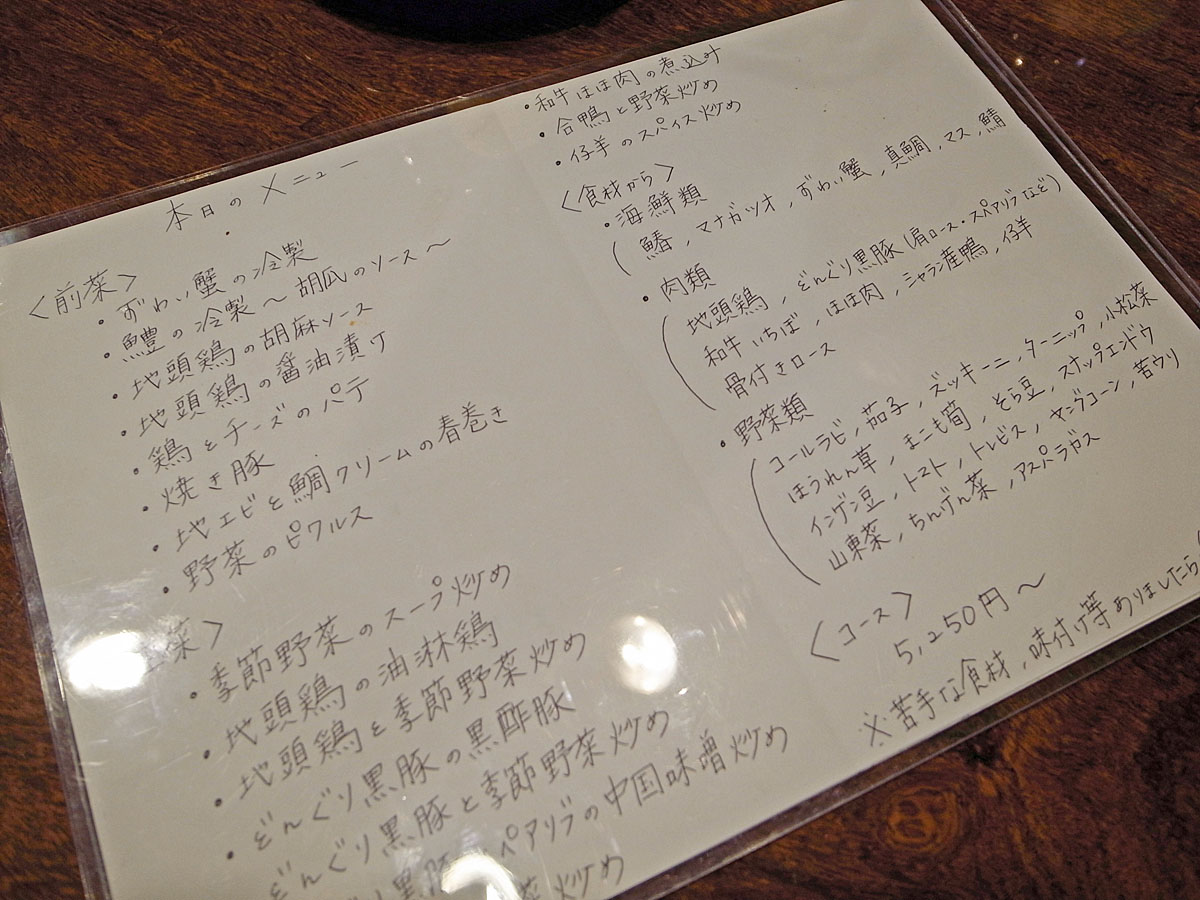 本日のメニュー
<前菜>
・ずわい蟹の冷製
・鱧の冷製〜胡瓜のソース〜
・地頭鶏の胡麻ソース
・地頭鶏の醤油漬け
・鶏とチーズのパテ
・焼き豚
・地エビと鯛クリームの春巻き
・野菜のピクルス
菜>
・季節野菜のスープ炒め
・地頭鶏の油淋鶏
・地頭鶏と季節野菜炒め
・どんぐり黒豚の黒酢豚
どんぐり黒豚と季節野菜炒め
黒豚 ペアリブの中国味噌炒め
菜炒め
・和牛ほほ肉の煮込み
・合鴨と野菜炒め
・仔羊のスパイス炒め
<食材から>
・海鮮類
(鰆、マナガツオ、ずわい蟹、真鯛、マス、鯖
・肉類
(地頭鶏、どんぐり黒豚(肩ロース・スペアリブなど)
和牛いちば、ほほ肉、シャラン産鴨、仔羊
骨付きロース
・野菜類
(コールラビ、茄子、ズッキーニ、ターニップ、小松菜
ほうれん草、まこも筍、そら豆、スナップエンドウ
インゲン豆、トマト、トレビス、ヤングコーン、苦ウリ
山東菜、ちんげん菜、アスパラガス
<コース>
5,250円〜
※苦手な食材、味付け等ありましたら